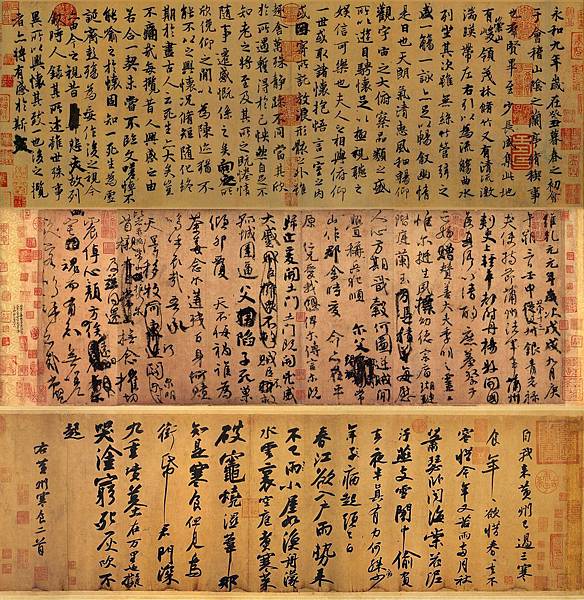 永和九年歲在癸丑暮春之初會
于會稽山陰之蘭亭脩稧事
也羣賢畢至少長咸集此地
有崇山峻領茂林脩竹又有清流激
湍暎帶左右引以為流觴曲水
列坐其次雖無絲竹管弦之
盛一觴一詠亦足以暢敘幽情
是日也天朗氣清惠風和暢仰
觀宇宙之大俯察品類之盛
所以遊目騁懷足以極視聽之
娛信可樂也夫人之相與俯仰
一世或取諸懷抱悟言一室之內
或因寄所託放浪形骸之外雖
趣舍萬殊靜躁不同當其欣
於所遇暫得於己快然自足不
知老之將至及其所之既惓情
隨事遷感慨係之矣向之所
欣俛仰之閒以為陳迹猶不
能不以之興懷況脩短隨化終
期於盡古人云死生亦大矣豈
不痛哉每攬昔人興感之由
若合一契未嘗不臨文嗟悼不
能喻之於懷固知一死生為虛
誕齊彭殤為妄作後之視今
亦由今之視昔悲夫故列
敘時人錄其所述雖世殊事
異所以興懷其致一也後之攬
者亦將有感於斯文
維乾元元年歲次戊戌九月庚
午朔三日壬申第十三叔銀青光祿
夫使持節蒲州諸軍事蒲州
刺史上輕車都尉丹楊縣開國
侯真卿以清酌庶羞祭于
亡姪贈贊善大夫季明之靈曰
惟爾挺生夙標幼德宗廟瑚璉
階庭蘭玉每慰
人心方期戩穀何圖逆賊閒
釁稱兵犯順爾父竭誠常
山作郡余時受命亦在平
原仁兄愛我俾爾傳言爾既
歸止爰開土門土門既開凶威
大蹙賊臣不救
孤城圍逼父陷子死巢
傾卵覆天不悔禍誰為
荼毒念爾遘殘百身何贖
嗚乎哀哉吾承
天澤移牧河關泉明
比者再陷常山攜爾
首櫬及茲同還撫念摧切
震悼心顏
魂而有知無嗟
久客嗚呼哀哉尚饗
自我來黃州已過三寒
食年年欲惜春春去不
容惜今年又苦雨兩月秋
蕭瑟臥聞海棠花泥
汙燕支雪闇中偷負
去夜半真有力何殊病少
年病起頭已白
春江欲入戶雨勢來
不已雨小屋如漁舟濛濛
水雲裏空庖煮寒菜
破竈燒濕葦那
知是寒食但見烏
銜帋君門深
九重墳墓在萬里也擬
哭塗窮死灰吹不
起
右黃州寒食二首